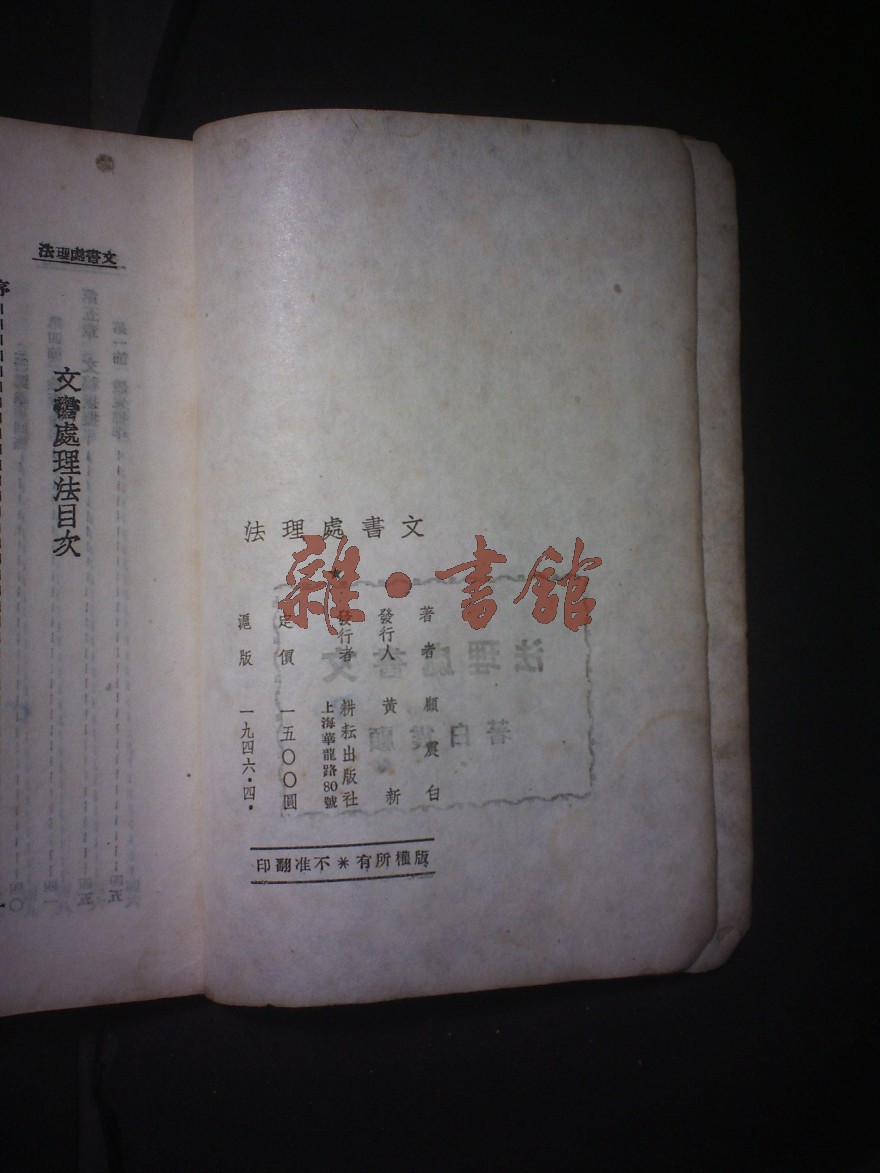 文書處理法
★
著者 顧震白
發行人 黃新
發行者 耕耘出版社
上海華龍路80號
定價 一五〇〇圓
滬版 一九四六·四·
版權所有＊不准翻印
雜·書館
文書處理法
文書處理法目次
序